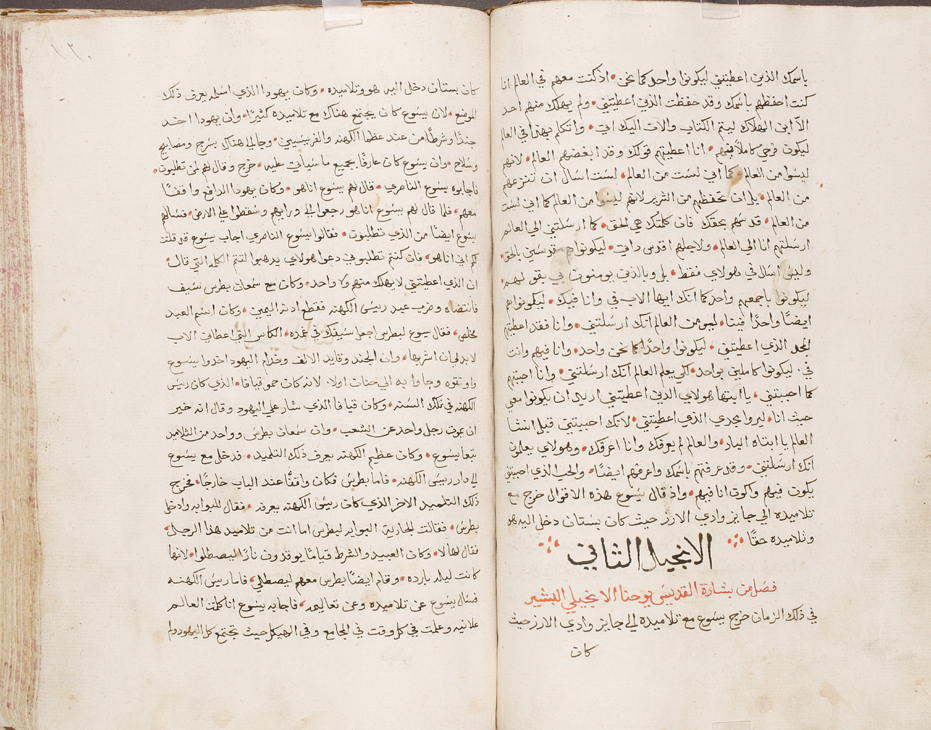 باسمك الذين اعطيتني ليكونوا واحد كما نحن • اذ كنت معهم في العالم انا
كنت احفظهم باسمك وقد حفظت الذي اعطيتني • ولم يهلك منهم احد
الا ابن الهلاك ليتم الكتاب والان اليك اتي • واتكلم بهذا في العالم
ليكون فرحي كاملا فيهم • انا اعطيتهم قولك وقد ابغضهم العالم • لانهم
ليسوا من العالم • كما اني لست من العالم • لست اسال ان تنزعهم
من العالم • بل ان تحفظهم من الشر لانهم ليسوا من العالم كما اني لست
من العالم • قدسهم بحقك فان كلمتك هي الحق • كما ارسلتني الي العالم
ارسلتهم انا الي العالم • ولاجلهم اقدس ذاتي • ليكونوا هم مقدسين بالحق
وليس اسال في هولاي فقط • بل وبالذين يومنون بي بقولهم
ليكونوا باجمعهم واحد كما انك ايها الاب في وانا فيك • ليكونوا هم
ايضا واحدا فينا • ليومن العالم انك ارسلتني • وانا فقد اعطيتهم
المجد الذي اعطيتني • ليكونوا واحدا كما نحن واحد • وانا فيهم وانت
في • ليكونوا كاملين بواحد • لكي يعلم العالم انك ارسلتني • وانا احببتهم
كما احببتني • يا ابتاه هولاي الذين اعطيتني اريد ان يكونوا معي
حيث انا • ليروا مجدي الذي اعطيتني • لانك احببتني قبل انشا
العالم يا ابتاه البار • والعالم لم يعرفك وانا اعرفك • وهولاي يعلمون
انك ارسلتني • وقد عرفتهم باسمك واعرفهم ايضا • والحب الذي احببتني
يكون فيهم واكون انا فيهم • واذ قال يسوع هذه الاقوال خرج مع
تلاميذه الي جايز وادي الارز حيث كان بستان دخل اليه هو
وتلاميذه حقا
الانجيل الثاني
فصل من بشارة القديس يوحنا الانجيلي البشير
في ذلك الزمان خرج يسوع مع تلاميذه الي جايز وادي الارز حيث
كان
كان بستان دخل اليه هو وتلاميذه • وكان يهودا الذي اسلمه يعرف ذلك
الموضع • لان يسوع كان يجتمع هناك مع تلاميذه كثيرا • وان يهودا اخذ
جندا وشرطا من عند عظما الكهنه والفريسيين • وجا الي هناك بسرج ومصابيح
وسلاح • وان يسوع كان عارفا بجميع ما سياتي عليه • خرج وقال لهم لمن تطلبون •
فاجابوه يسوع الناصري • قال لهم يسوع انا هو • وكان يهودا الدافع واقفا
معهم • فلما قال لهم يسوع انا هو رجعوا الي ورايهم وسقطوا علي الارض • فسالهم
يسوع ايضا من الذي تطلبون • فقالوا يسوع الناصري اجاب يسوع قد قلت
لكم اني انا هو • فان كنتم تطلبوني دعوا هولاي يذهبوا لتتم الكلمه التي قال
ان الذي اعطيتني لا يهلك منهم ولا واحد • وكان مع سمعان بطرس سيف
فانتضاه وضرب عبد رييس الكهنه فقطع اذنه اليمين • وكان اسم العبد
ملخس • فقال يسوع لبطرس اجعل سيفك في غمده • الكاس التي اعطاني الاب
لا بد لي ان اشربها • وان الجند وقايد الالف وخدام اليهود اخذوا يسوع
واوثقوه وجاوا به الي حنان اولا • لانه كان حمو قيافا • الذي كان رييس
الكهنه في تلك السنه • وكان قيافا الذي شار علي اليهود وقال انه خير
ان يموت رجل واحد عن الشعب • وان سمعان بطرس وواحد من التلاميذ
تبعا يسوع • وكان عظيم الكهنه يعرف ذلك التلميذ • فدخل مع يسوع
الي دار رييس الكهنه • فاما بطرس فكان واقفا عند الباب خارجا • فخرج
ذلك التلميذ الاخر الذي كان رييس الكهنه يعرفه • فقال للبوابه وادخل
بطرس • فقالت الجاريه البوابه لبطرس اما انت من تلاميذ هذا الرجل •
فقال لها لا • وكان العبيد والشرط قياما يوقدون نارا ليصطلوا • لانها
كانت ليله بارده • وقام ايضا بطرس معهم ليصطلي • فاما رييس الكهنه
فسال يسوع عن تلاميذه وعن تعاليمه • فاجابه يسوع انا كلمت العالم
علانيه وعلمت في كل وقت في المجامع وفي الهيكل حيث تجتمع كل اليهود